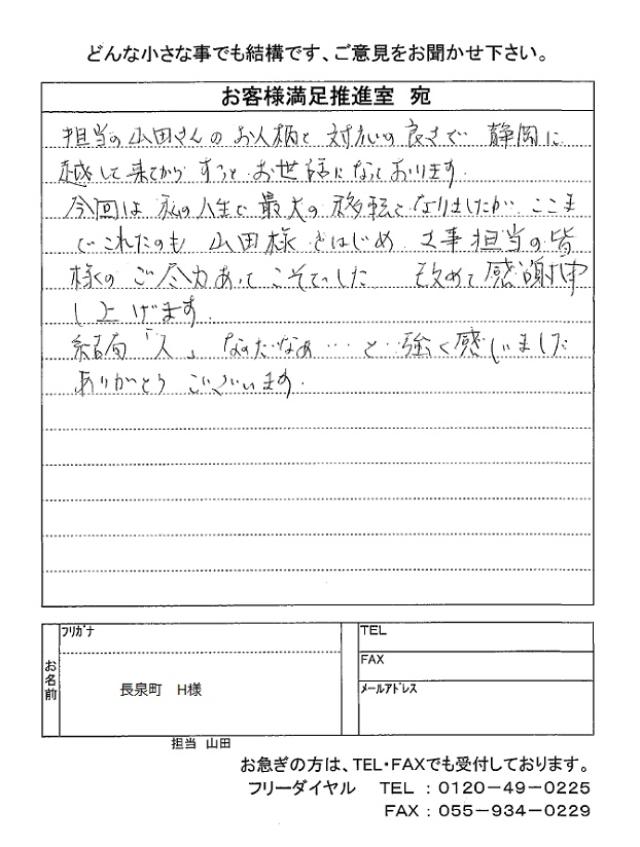 どんな小さな事でも結構です、ご意見をお聞かせ下さい。
お客様満足推進室 宛
担当の山田さんのお人柄と対応の良さで 静岡に
越して来てから ずっと お世話になっております.
今回は 私の人生で 最大の 移転となりましたが ここま
でこれたのも 山田様をはじめ 工事担当の皆
様の ご尽力あって こそでした 改めて感謝申
し上げます.
結局「人」なのだなあ…と 強く感じました
ありがとう ございます.
お名前
フリガナ
長泉町 H様
TEL
FAX
メールアドレス
担当 山田
お急ぎの方は、TEL・FAXでも受付しております。
フリーダイヤル TEL : 0120-49-0225
FAX : 055-934-0229